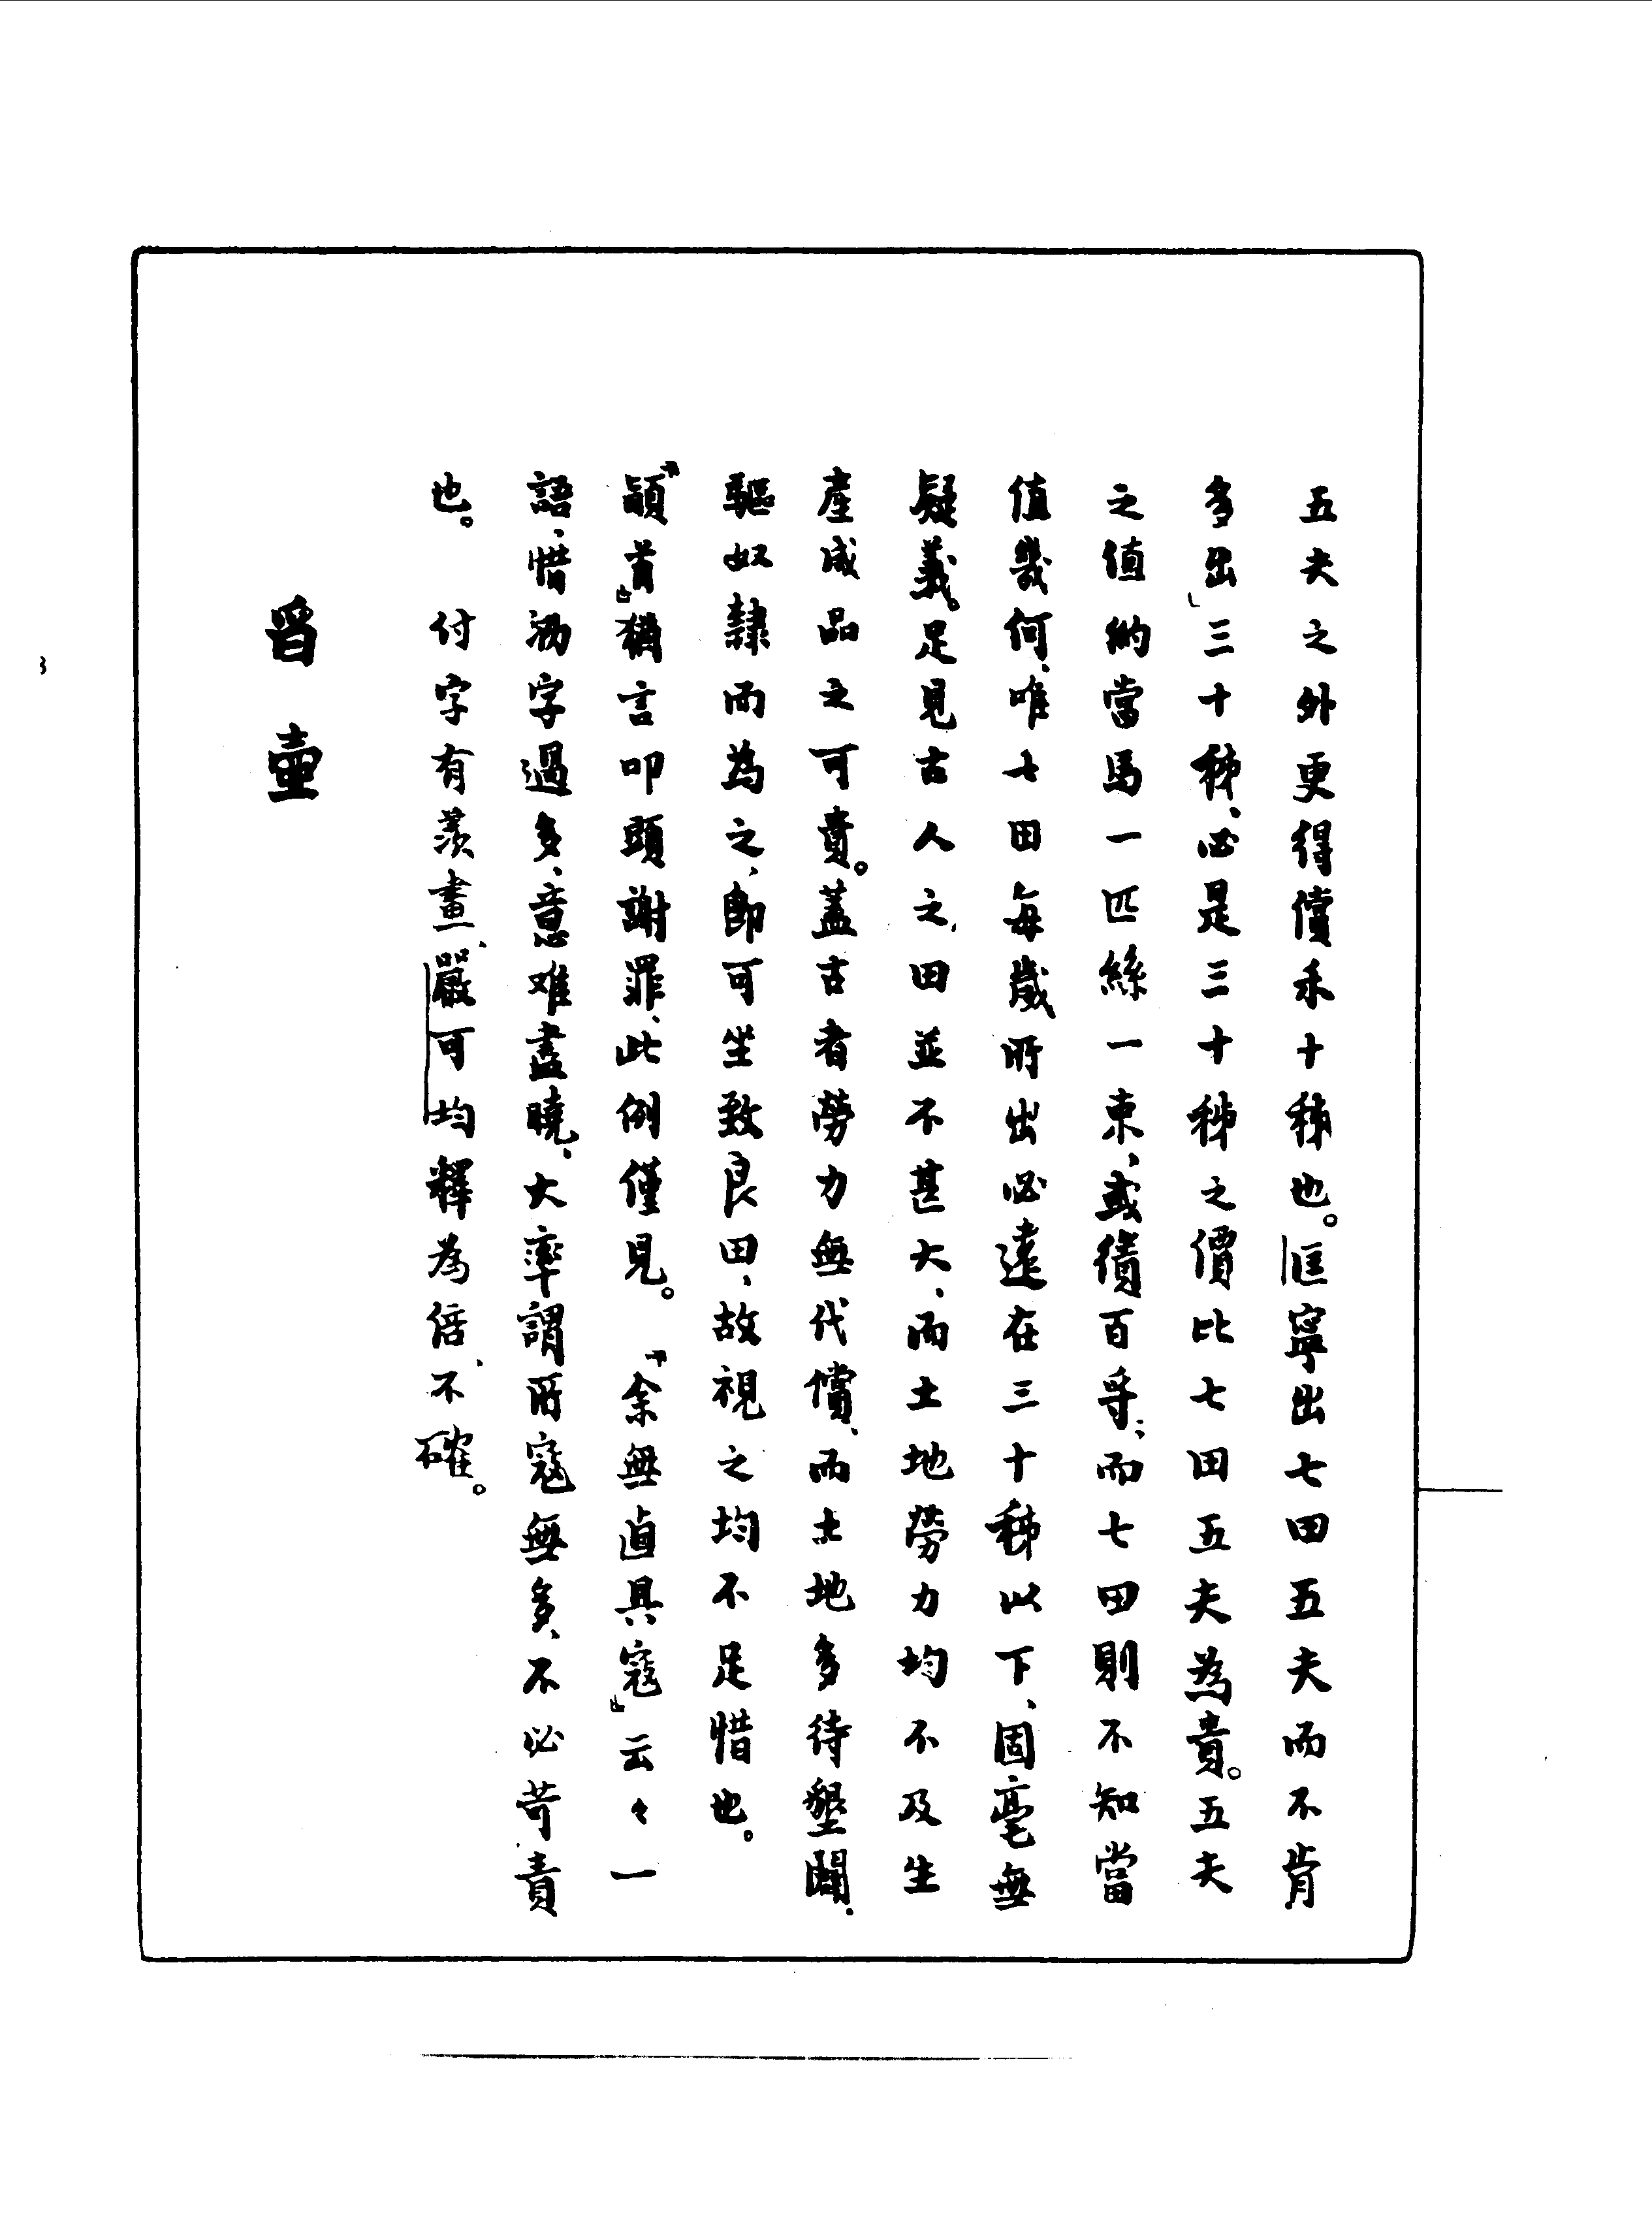 五夫之外更得償禾十秭也。匡寧出七田五夫而不肯
多出三十秭、必是三十秭之價比七田五夫為貴。五夫
之值約當馬一匹絲一束、或債百寽；而七田則不知當
值幾何、唯七田每歲所出必遠在三十秭以下、固毫無
疑義。足見古人之田並不甚大、而土地勞力均不及生
產成品之可貴。蓋古者勞力無代償、而土地多待墾闢、
驅奴隸而為之、即可坐致良田、故視之均不足惜也。
『䭫首』猶言叩頭謝罪、此例僅見。『余無逌具寇』云々一
語、惜泐字過多、意难盡曉、大率謂所寇無多、不必苛責
也。 付字有羨畫、嚴可均釋為倍、不確。
曶壷